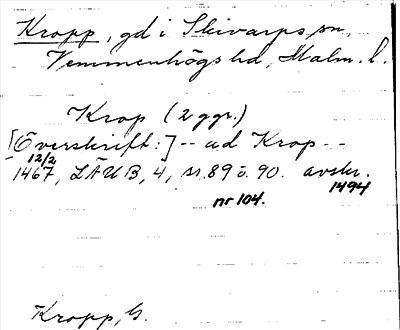 Kropp, gd i Skivarps sn,
Vemmenhögs hd, Malm. l.
Krop (2 ggr.)
[Överskrift:] -- ad Krop --
12/2
1467, LÄUB, 4, ss. 89 o. 90. avskr.
1494
nr 104.
Kropp, G.